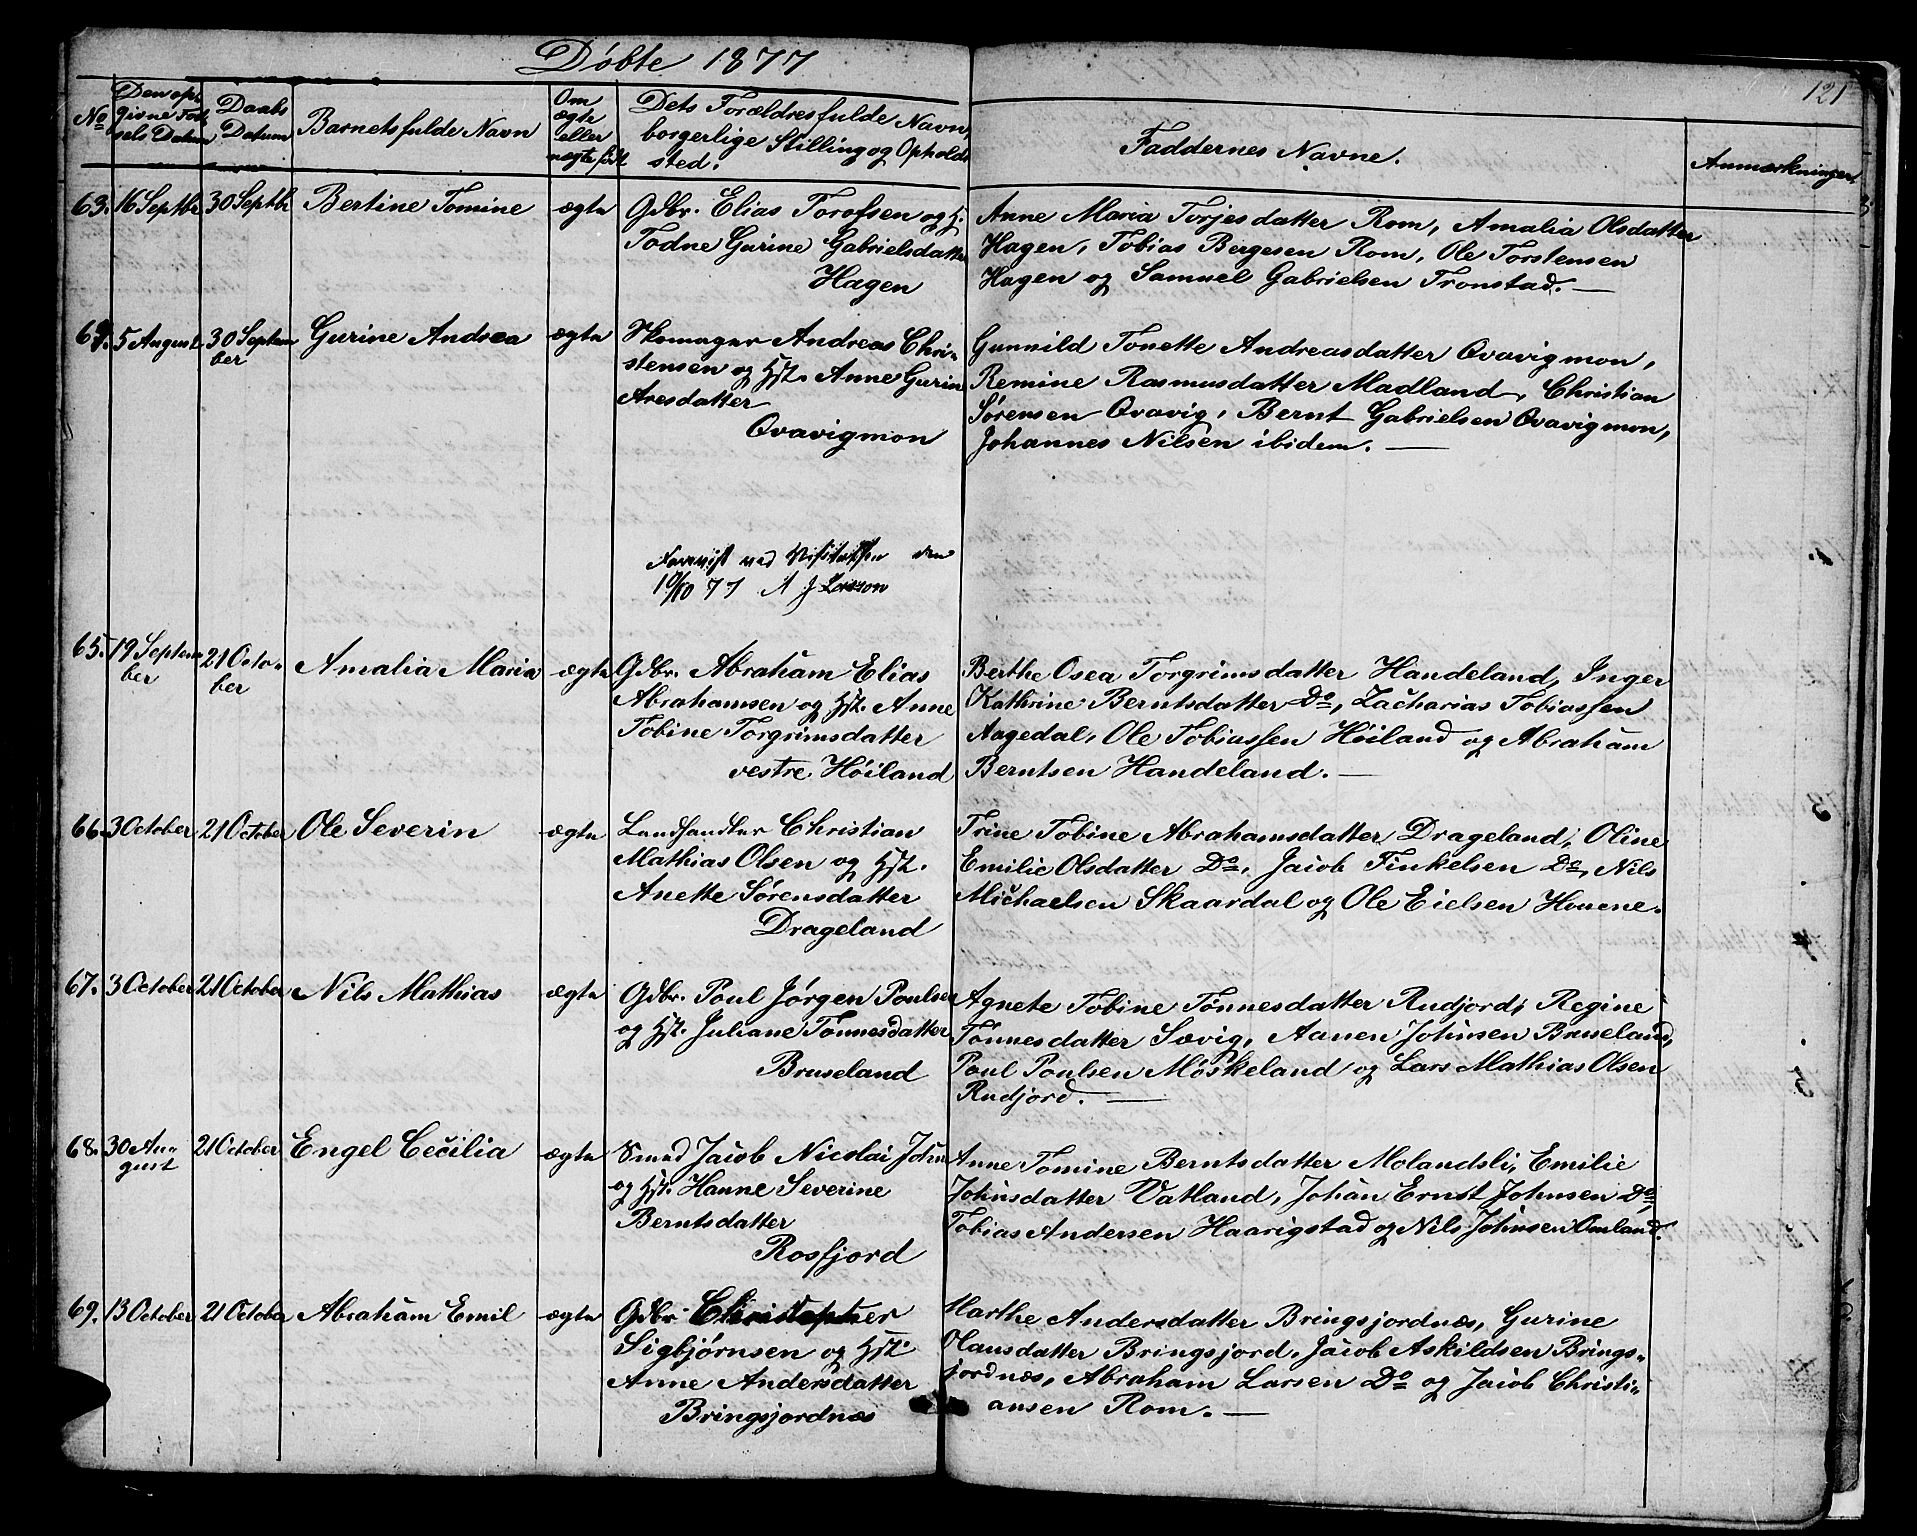 Døbte 1877
121
No
Den op-
givne Fød-
sels Datum
Daabs
Datum
Barnets fulde Navn
Om
ægte
eller
uægte født
Dets Forældres fulde Navn,
borgerlige Stilling og Opholds
sted.
Faddernes Navne.
Anmærkninger
63. 16 Septbr 30 Septbr Bertine Tomine ægte
Gdbr. Elias Torofsen og H.
Todne Gurine Gabrielsdatter
Hagen
Anne Maria Torjesdatter Rom, Amalia Olsdatter
Hagen, Tobias Bergesen Rom, Ole Torstensen
Hagen og Samuel Gabrielsen Tronstad. —
64. 5 August 30 Septem
ber
Gurine Andrea ægte
Skomager Andreas Chri-
stensen og Hst. Anne Gurin
Aresdatter
Qvavigmon
Gunnild Tonette Andreasdatter Qvavigmon,
Remine Rasmusdatter Madland, Christian
Sørensen Qvavig, Bernt Gabrielsen Qvavigmon,
Johannes Nilsen ibidem. —
Forevist ved Visitatsen den
10/10 77 A J Larson
65. 19 Septem
ber
21 Octo-
ber
Amalia Maria ægte
Gdbr. Abraham Elias
Abrahamsen og Hst. Anne
Tobine Torgrimsdatter
vestre Høiland
Berthe Osea Torgrimsdatter Handeland, Inger
Kathrine Berntsdatter Do, Zacharias Tobiassen
Aagedal, Ole Tobiassen Høiland og Abraham
Berntsen Handeland. —
66. 3 October 21 October Ole Severin ægte
Landhandler Christian
Mathias Olsen og Hst.
Anette Sørensdatter
Drageland
Trine Tobine Abrahamsdatter Drageland, Oline
Emilie Olsdatter Do, Jacob Finkelsen Do, Nils
Michaelsen Skaardal og Ole Eielsen Houene.
67. 3 October 21 October Nils Mathias ægte
Gdbr. Poul Jørgen Poulsen
og Hst. Juliane Tønnesdatter
Bruseland
Agnete Tobine Tønnesdatter Rudjord, Regine
Tønnesdatter Sævig, Aanen Johnsen Bruseland,
Poul Poulsen Møskeland og Lars Mathias Olsen
Rudjord. —
68. 30 Au-
gust
21 October Engel Cecilia ægte
Smed Jacob Nicolai John
og Hst. Hanne Severine
Berntsdatter
Rosfjord
Anne Tomine Berntsdatter Molandsli, Emilie
Johnsdatter Vatland, Johan Ernst Johnsen Do,
Tobias Andersen Haarigstad og Nils Johnsen Omland.
69. 13 October 21 October Abraham Emil ægte
Gdbr Christopher
Sigbjørnsen og Hst.
Anne Andersdatter
Bringsjordnæs
Marthe Andersdatter Bringsjordnæs, Gurine
Olausdatter Bringsjord, Jacob Askildsen Brings-
jordnæs, Abraham Larsen Do og Jacob Christi-
ansen Rom. —